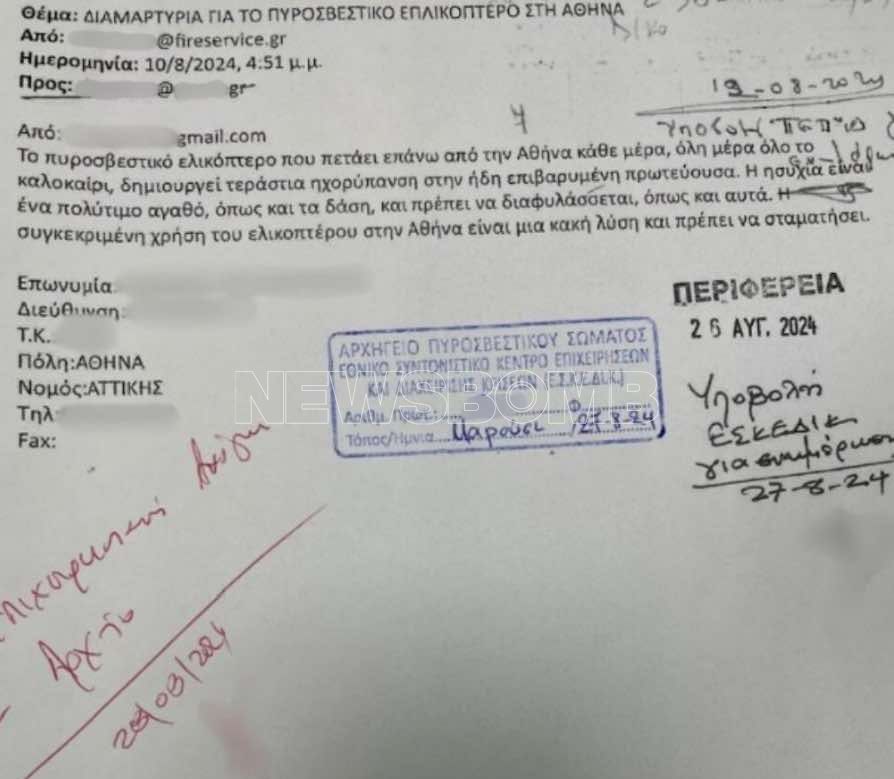 Θέμα: ΔΙΑΜΑΡΤΥΡΙΑ ΓΙΑ ΤΟ ΠΥΡΟΣΒΕΣΤΙΚΟ ΕΠΛΙΚΟΠΤΕΡΟ ΣΤΗ ΑΘΗΝΑ
Από: @fireservice.gr
Ημερομηνία: 10/8/2024, 4:51 μ.μ.
Προς: @ gr
19-08-2024
Από: gmail.com
Το πυροσβεστικό ελικόπτερο που πετάει επάνω από την Αθήνα κάθε μέρα, όλη μέρα όλο το
καλοκαίρι, δημιουργεί τεράστια ηχορύπανση στην ήδη επιβαρυμένη πρωτεύουσα. Η ησυχία είναι
ένα πολύτιμο αγαθό, όπως και τα δάση, και πρέπει να διαφυλάσσεται, όπως και αυτά. Η
συγκεκριμένη χρήση του ελικοπτέρου στην Αθήνα είναι μια κακή λύση και πρέπει να σταματήσει.
Επωνυμία
Διεύθυνση:
Τ.Κ.
Πόλη:ΑΘΗΝΑ
Νομός:ΑΤΤΙΚΗΣ
Τηλ
Fax:
ΠΕΡΙΦΕΡΕΙΑ
26 ΑΥΓ. 2024
ΑΡΧΗΓΕΙΟ ΠΥΡΟΣΒΕΣΤΙΚΟΥ ΣΩΜΑΤΟΣ
ΕΘΝΙΚΟ ΣΥΝΤΟΝΙΣΤΙΚΟ ΚΕΝΤΡΟ ΕΠΙΧΕΙΡΗΣΕΩΝ
ΚΑΙ ΔΙΑΧΕΙΡΙΣΗΣ ΚΡΙΣΕΩΝ (Ε.Σ.Κ.Ε.ΔΙ.Κ.)
Αριθμ. Πρωτ.: Φ.
Τόπος/Ημνια Μαρούσι 27-8-24
NEWSBOMB
Υποβολή
ΕΣΚΕΔΙΚ
για ενημέρωση
27-8-24
Αρχείο
28/08/2024